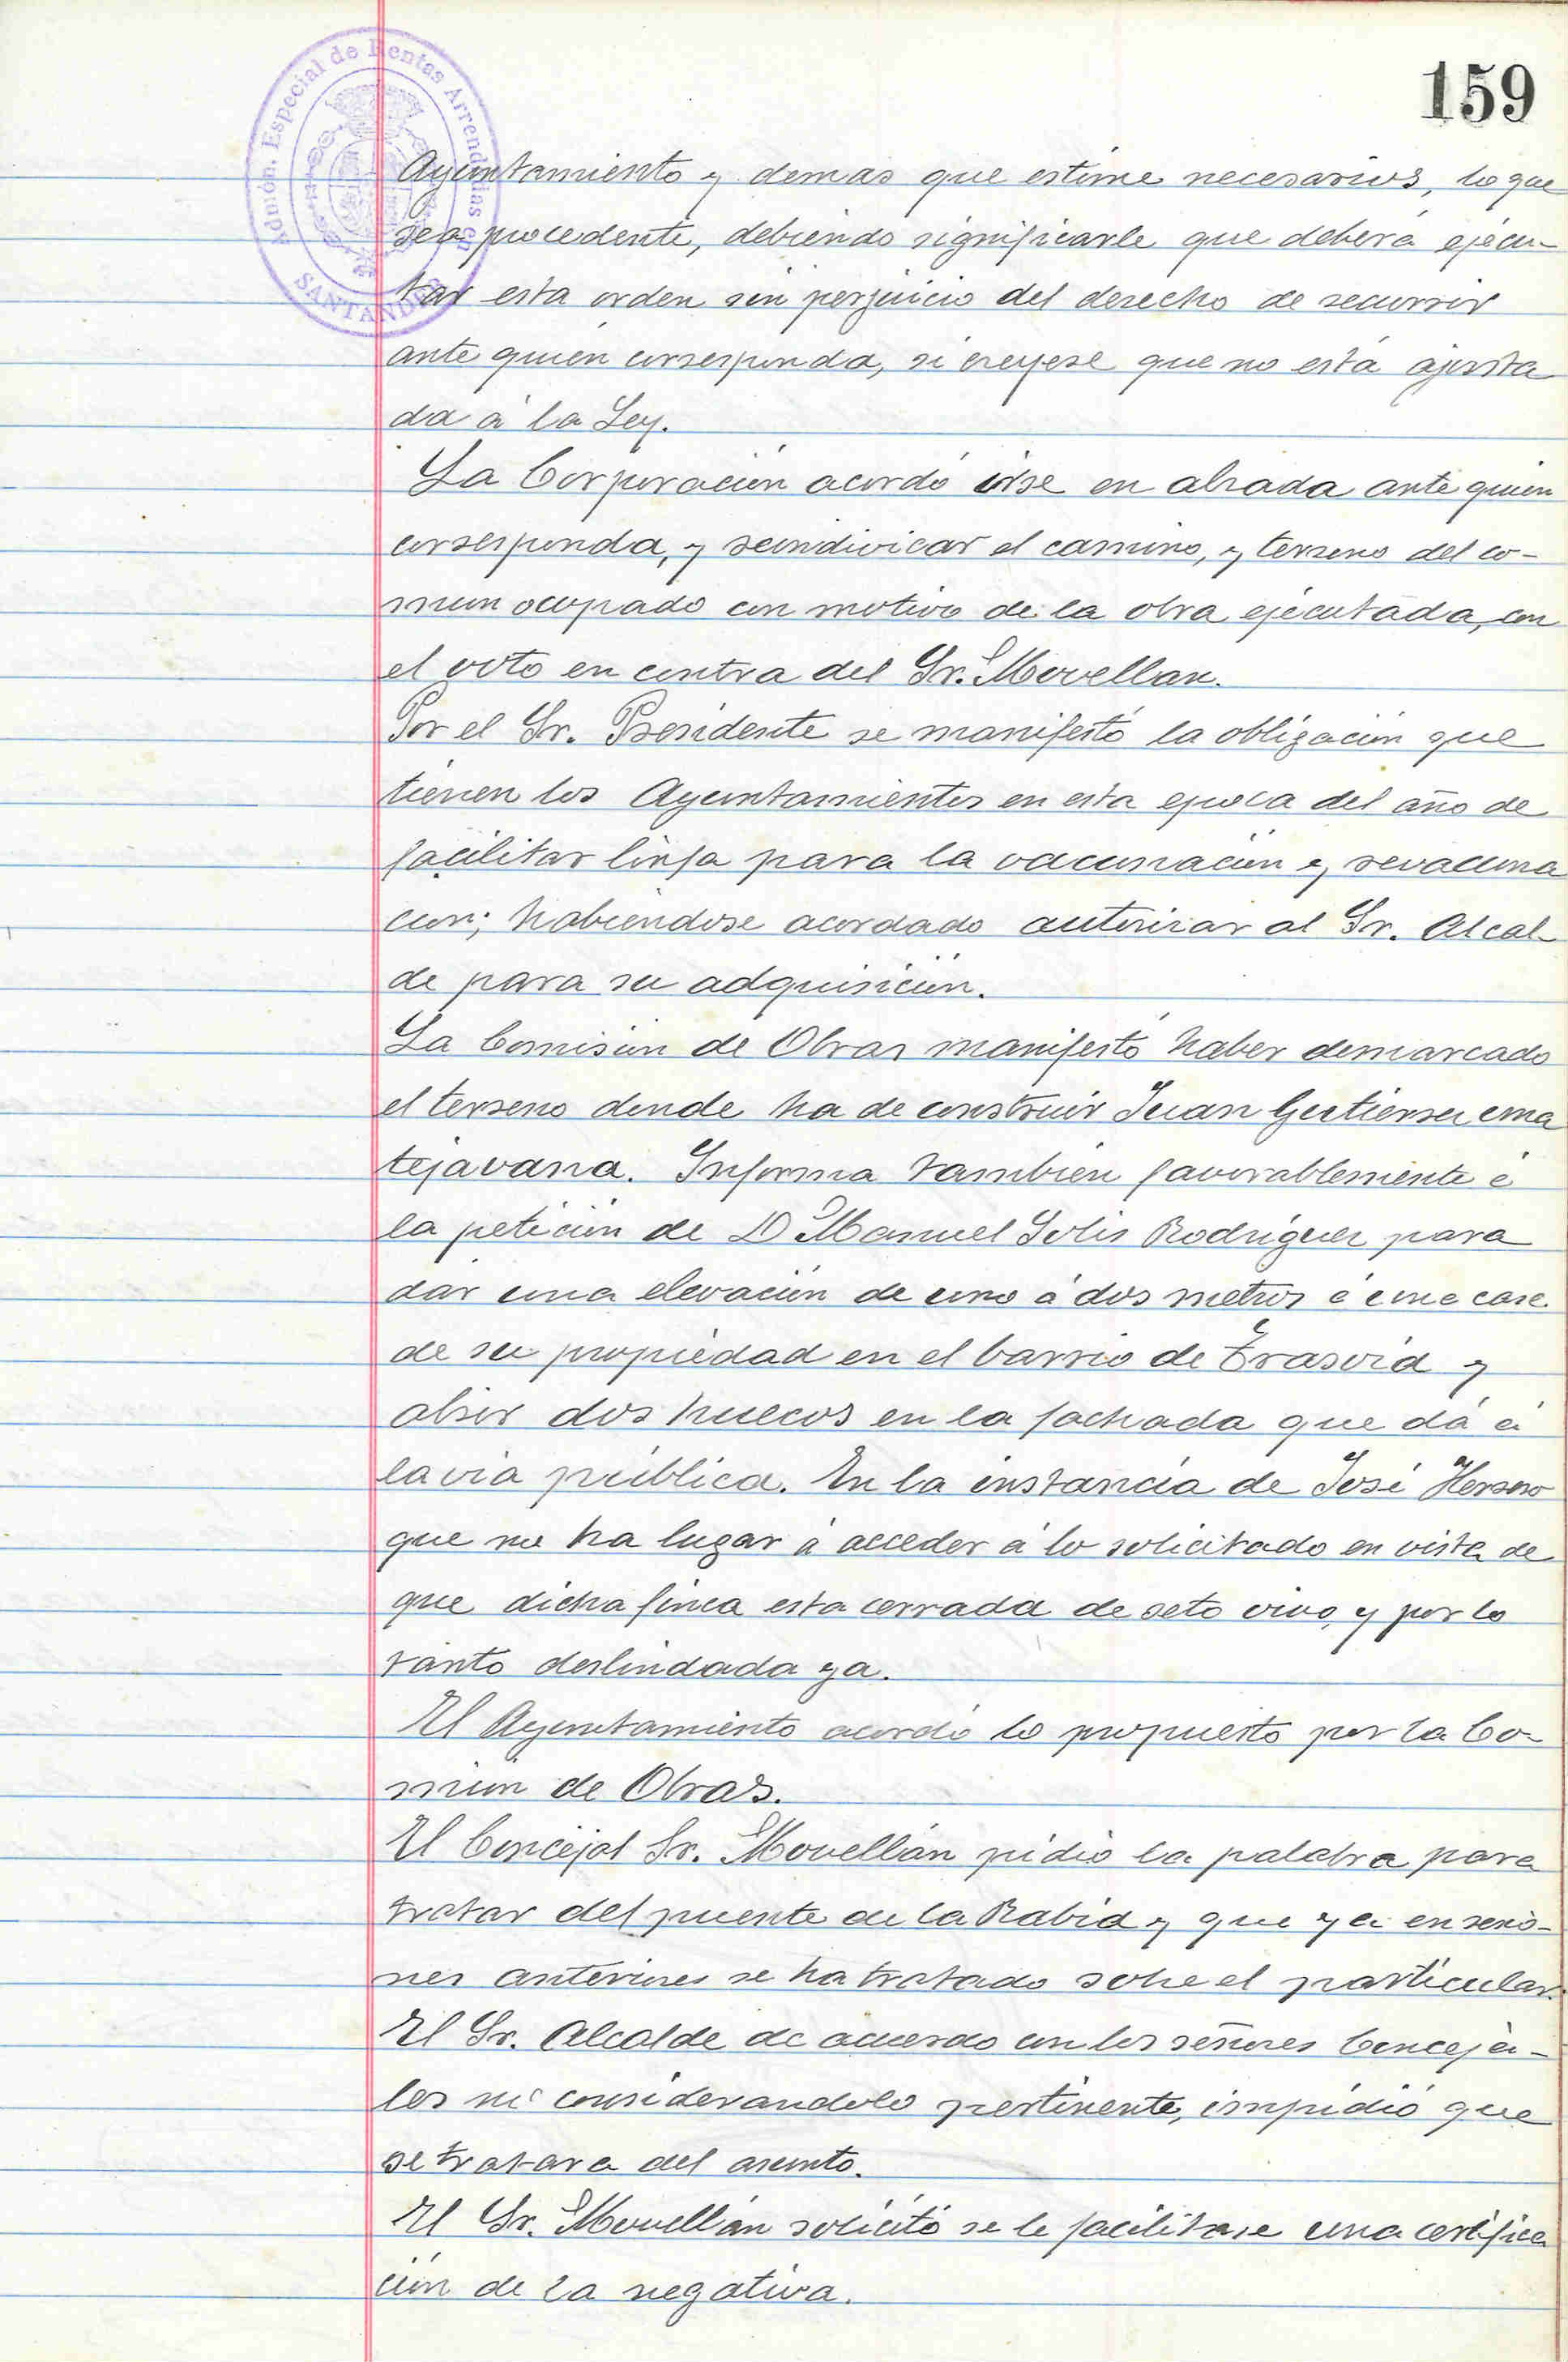 159
Admón. Especial de Rentas Arrendadas en
SANTANDER
Ayuntamiento y demas que estime necesarios, lo que
sea procedente, debiendo significarle que deberá ejecu-
tar esta orden sin perjuicio del derecho de recurrir
ante quien corresponda, si creyese que no está ajusta
da á la Ley.
La Corporación acordó irse en alzada ante quien
corresponda, y reindivicar el camino, y terreno del co-
mun ocupado con motivo de la obra ejecutada, con
el voto en contra del Sr. Movellan.
Por el Sr. Presidente se manifestó la obligación que
tienen los Ayuntamientos en esta epoca del año de
facilitar linfa para la vacunación y revacuna
cion; habiendose acordado autorizar al Sr. Alcal-
de para su adquisición.
La Comisión de Obras manifestó haber demarcado
el terreno donde ha de construir Juan Gutierrez una
tejavana. Informa tambien favorablemente á
la petición de D Manuel Solis Rodriguez para
dar una elevación de uno á dos metros á una casa
de su propiedad en el barrio de Trasvia y
abrir dos huecos en la fachada que dá á
la via pública. En la instancia de José Herrero
que no ha lugar á acceder á lo solicitado en vista de
que dicha finca esta cerrada de seto vivo, y por lo
tanto deslindada ya.
El Ayuntamiento acordó lo propuesto por la Co-
mision de Obras.
El Concejal Sr. Movellán pidio la palabra para
tratar del puente de la Rabia y que ya en sesio-
nes anteriores se ha tratado sobre el particular.
El Sr. Alcalde de acuerdo con los señores Conceja-
les no considerandolo pertinente, impidió que
se tratara del asunto.
El Sr. Movellán solicitó se le facilitase una certifica
ción de la negativa.